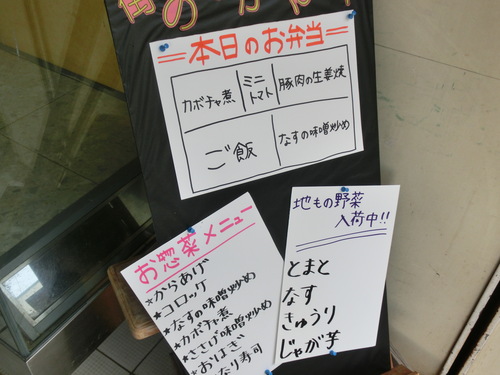 =本日のお弁当=
カボチャ煮
ミニトマト
豚肉の生姜焼
ご飯
なすの味噌炒め
お惣菜メニュー
★からあげ
★コロッケ
★なすの味噌炒め
★カボチャ煮
★ささげ味噌炒め
★おはぎ
なり寿司
地もの野菜
入荷中!!
とまと
なす
きゅうり
じゃが芋